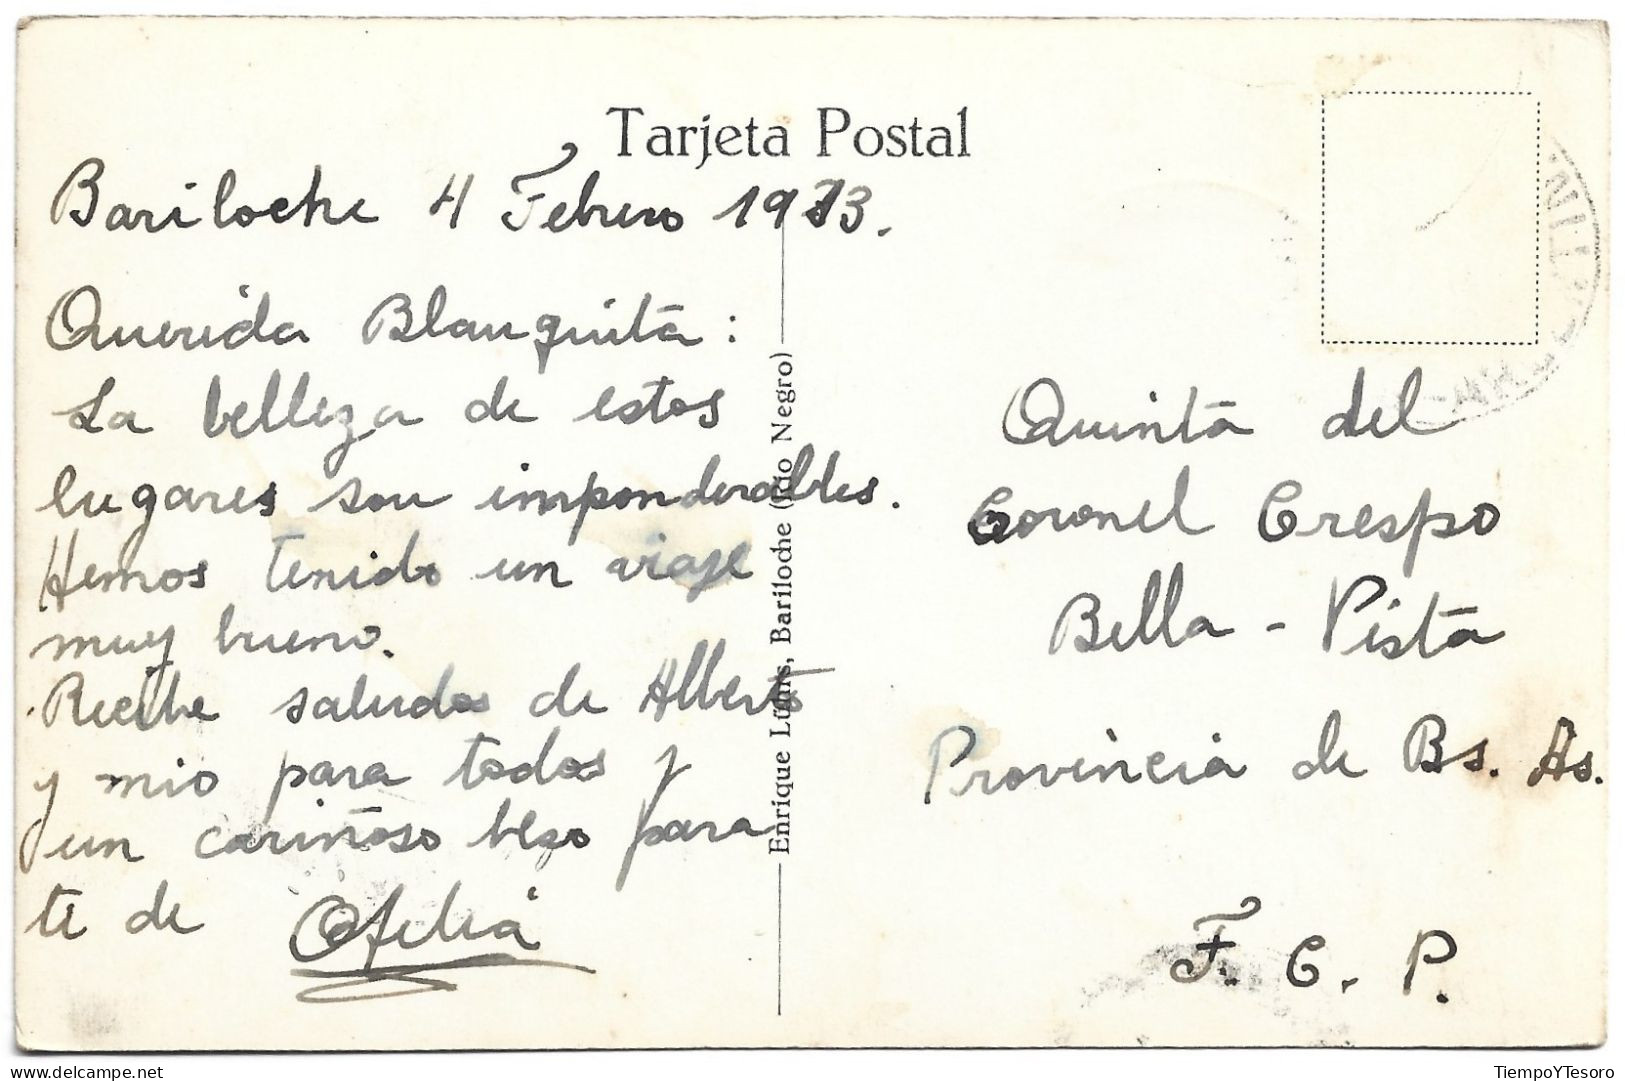 Tarjeta Postal
Bariloche 4 Febrero 1933.
Querida Blanquita:
La belleza de estos
lugares son imponderables.
Hemos tenido un viaje
muy bueno.
Recibe saludos de Alberto
y mio para todos y
un cariñoso beso para
ti de Ofelia
Enrique Lührs, Bariloche (Río Negro)
Quinta del
Coronel Crespo
Bella - Vista
Provincia de Bs. As.
F. C. P.
TiempoYTesoro